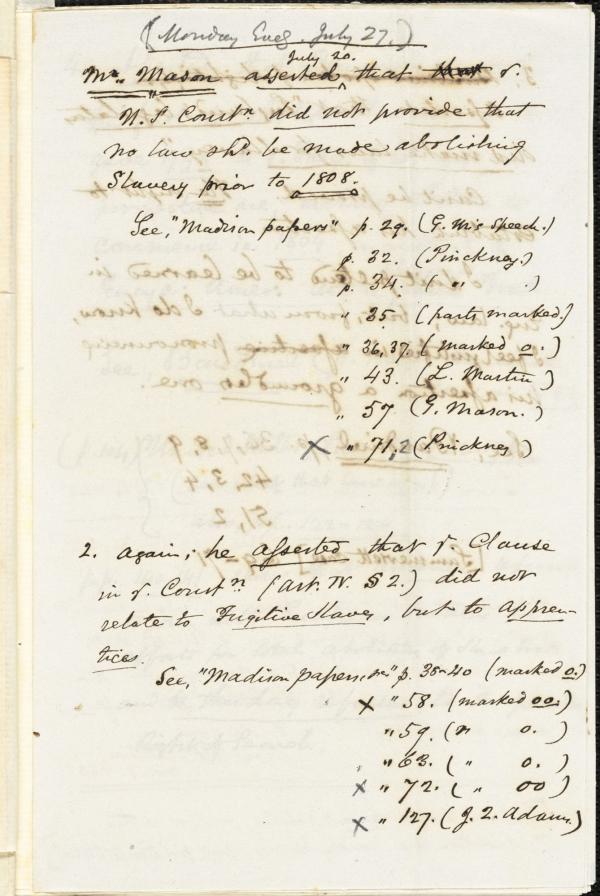 (Monday Eveg. July 27.)
July 20.
Mr. Mason asserted that that ye.
U.S. Constn did not provide that
no law shd. be made abolishing
Slavery prior to 1808.
See, "Madison papers" p. 29. (G. M's Speech.)
p. 32. (Pinckney.)
p. 34. ( " .)
" 35. (parts marked.)
" 36, 37. (marked o.)
" 43. (L. Martin)
" 57. (G. Mason.)
X " 71,2 (Pinckney)
2. Again; he asserted that ye. Clause
in ye. Constn (Art. IV. § 2.) did not
relate to Fugitive Slaves, but to Appren-
tices.
See, "Madison papers," p. 35-40 (marked o.)
X " 58. (marked oo.)
" 59. (" o. )
" 63. ( " o. )
X " 72. ( " oo )
X " 127. (J. Q. Adams.)